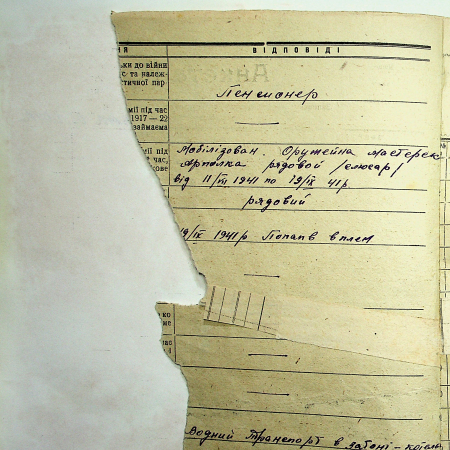 ня ВІДПОВІДІ
ьки до війни
с та належ-
стичної пар-
Пенсионер
мії під час
1917 — 22
займаема
—
мії під
час,
кове
Мобілізован. Оружейна мастерск
Артполка рядовой /слюсар/
від 11/VII 1941 по 19/IX 41 р
рядовий
19/IX 1941 р Попав в плен
—
ко
не
—
час
і
—
Водний Транспорт в затоні – котель